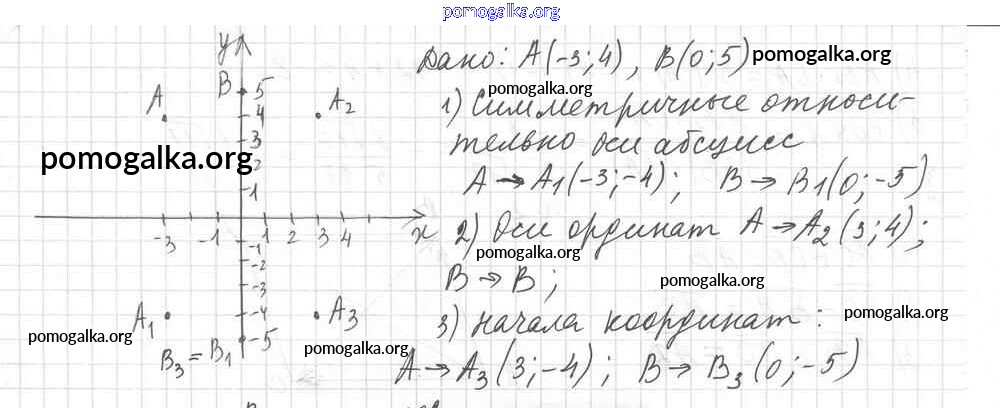 pomogalka.org
y
Дано: A(-3;4), B(0;5) pomogalka.org
B 5
A
A2
4
pomogalka.org
1) Симметричные относи-
3
тельно оси абсцисс
pomogalka.org
2
1
A → A1(-3;-4); B → B1(0;-5)
-3 -1 1 2 3 4 x
2) Оси ординат A → A2(3;4);
-1
pomogalka.org
-2
B → B;
pomogalka.org
-3
A1
-4
A3
3) начала координат:
pomogalka.org
pomogalka.org
-5
pomogalka.org
B3 = B1
A → A3(3;-4); B → B3(0;-5)